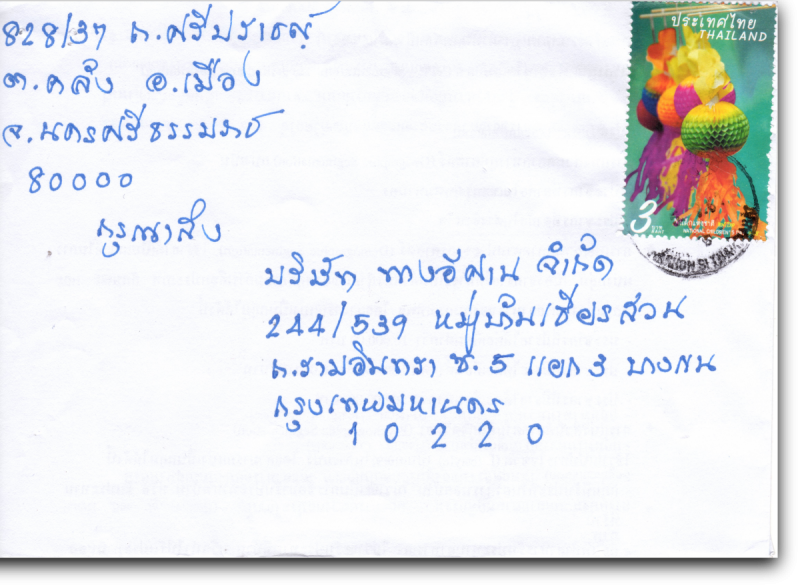 828/37 ถ.ศรีปราชญ์
ต.คลัง อ.เมือง
จ.นครศรีธรรมราช
80000
กรุณาส่ง
บริษัท ทางอีศาน จำกัด
244/539 หมู่บ้านเธียรสวน
ถ.รามอินทรา ซ.5 แยก 3 บางเขน
กรุงเทพมหานคร
10220
ประเทศไทย
THAILAND
3
บาท
BAHT